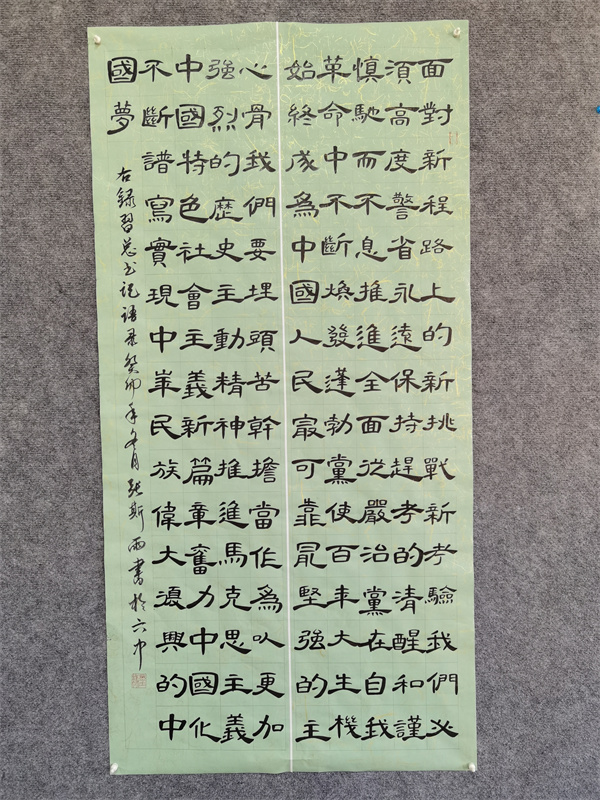 面對新程路上的新挑戰新考驗我們必
須高度警省永遠保持趕考的清醒和謹
慎馳而不息推進全面從嚴治黨在自我
革命中不斷煥發蓬勃黨使百年大生機
始終成為中國人民最可靠最堅強的主
心骨我們要埋頭苦幹擔當作為以更加
強烈的歷史主動精神推進馬克思主義
中國特色社會主義新篇章奮力中國化
不斷譜寫實現中華民族偉大復興的中
國夢
右錄習总书记语录癸卯年冬月張斯雨書於六中